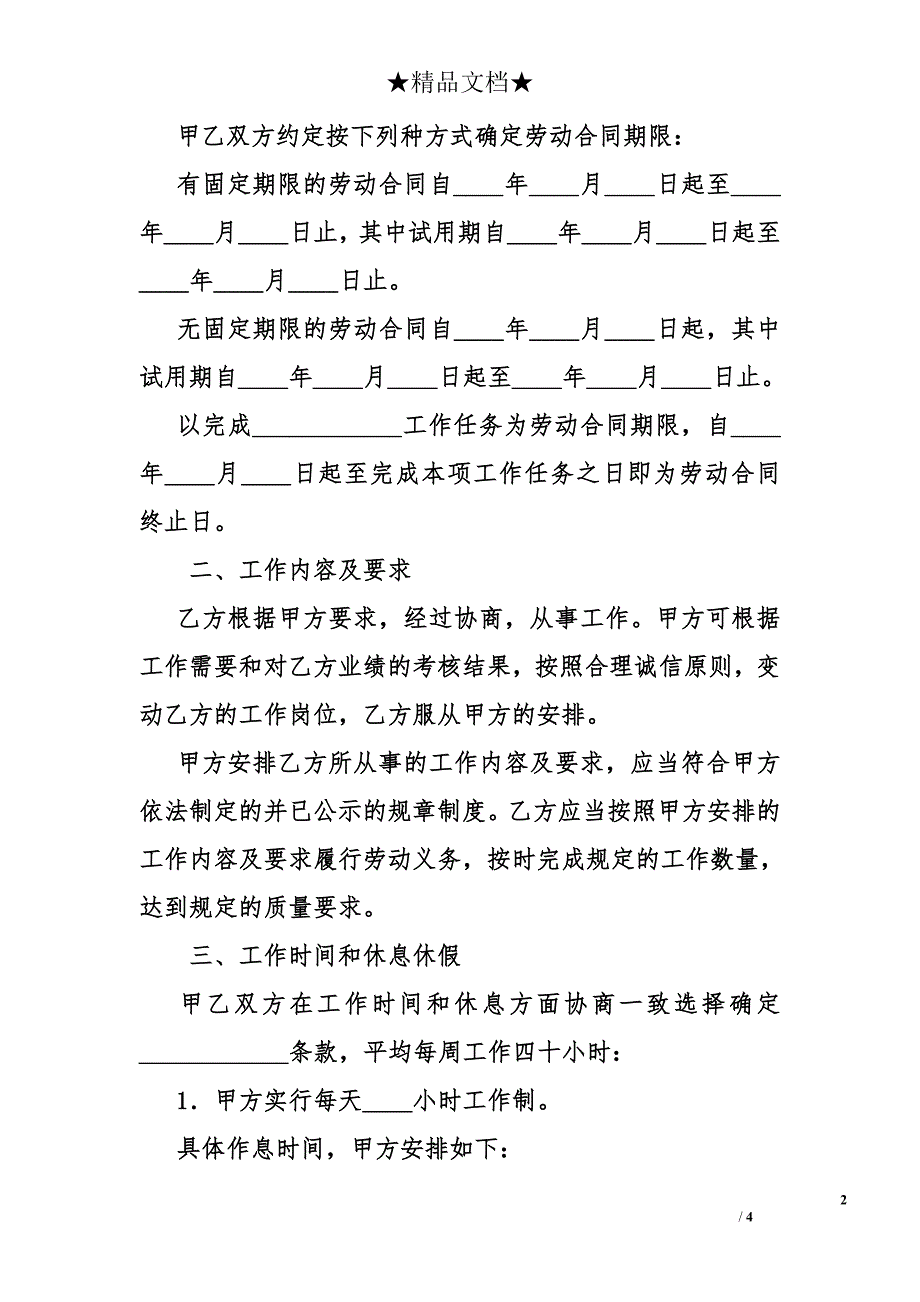 ★精品文档★
甲乙双方约定按下列种方式确定劳动合同期限：
有固定期限的劳动合同自____年____月____日起至____
年____月____日止，其中试用期自____年____月____日起至
____年____月____日止。
无固定期限的劳动合同自____年____月____日起，其中
试用期自____年____月____日起至____年____月____日止。
以完成____________工作任务为劳动合同期限，自____
年____月____日起至完成本项工作任务之日即为劳动合同
终止日。
二、工作内容及要求
乙方根据甲方要求，经过协商，从事工作。甲方可根据
工作需要和对乙方业绩的考核结果，按照合理诚信原则，变
动乙方的工作岗位，乙方服从甲方的安排。
甲方安排乙方所从事的工作内容及要求，应当符合甲方
依法制定的并已公示的规章制度。乙方应当按照甲方安排的
工作内容及要求履行劳动义务，按时完成规定的工作数量，
达到规定的质量要求。
三、工作时间和休息休假
甲乙双方在工作时间和休息方面协商一致选择确定
____________条款，平均每周工作四十小时：
1．甲方实行每天____小时工作制。
具体作息时间，甲方安排如下：
2
/ 4